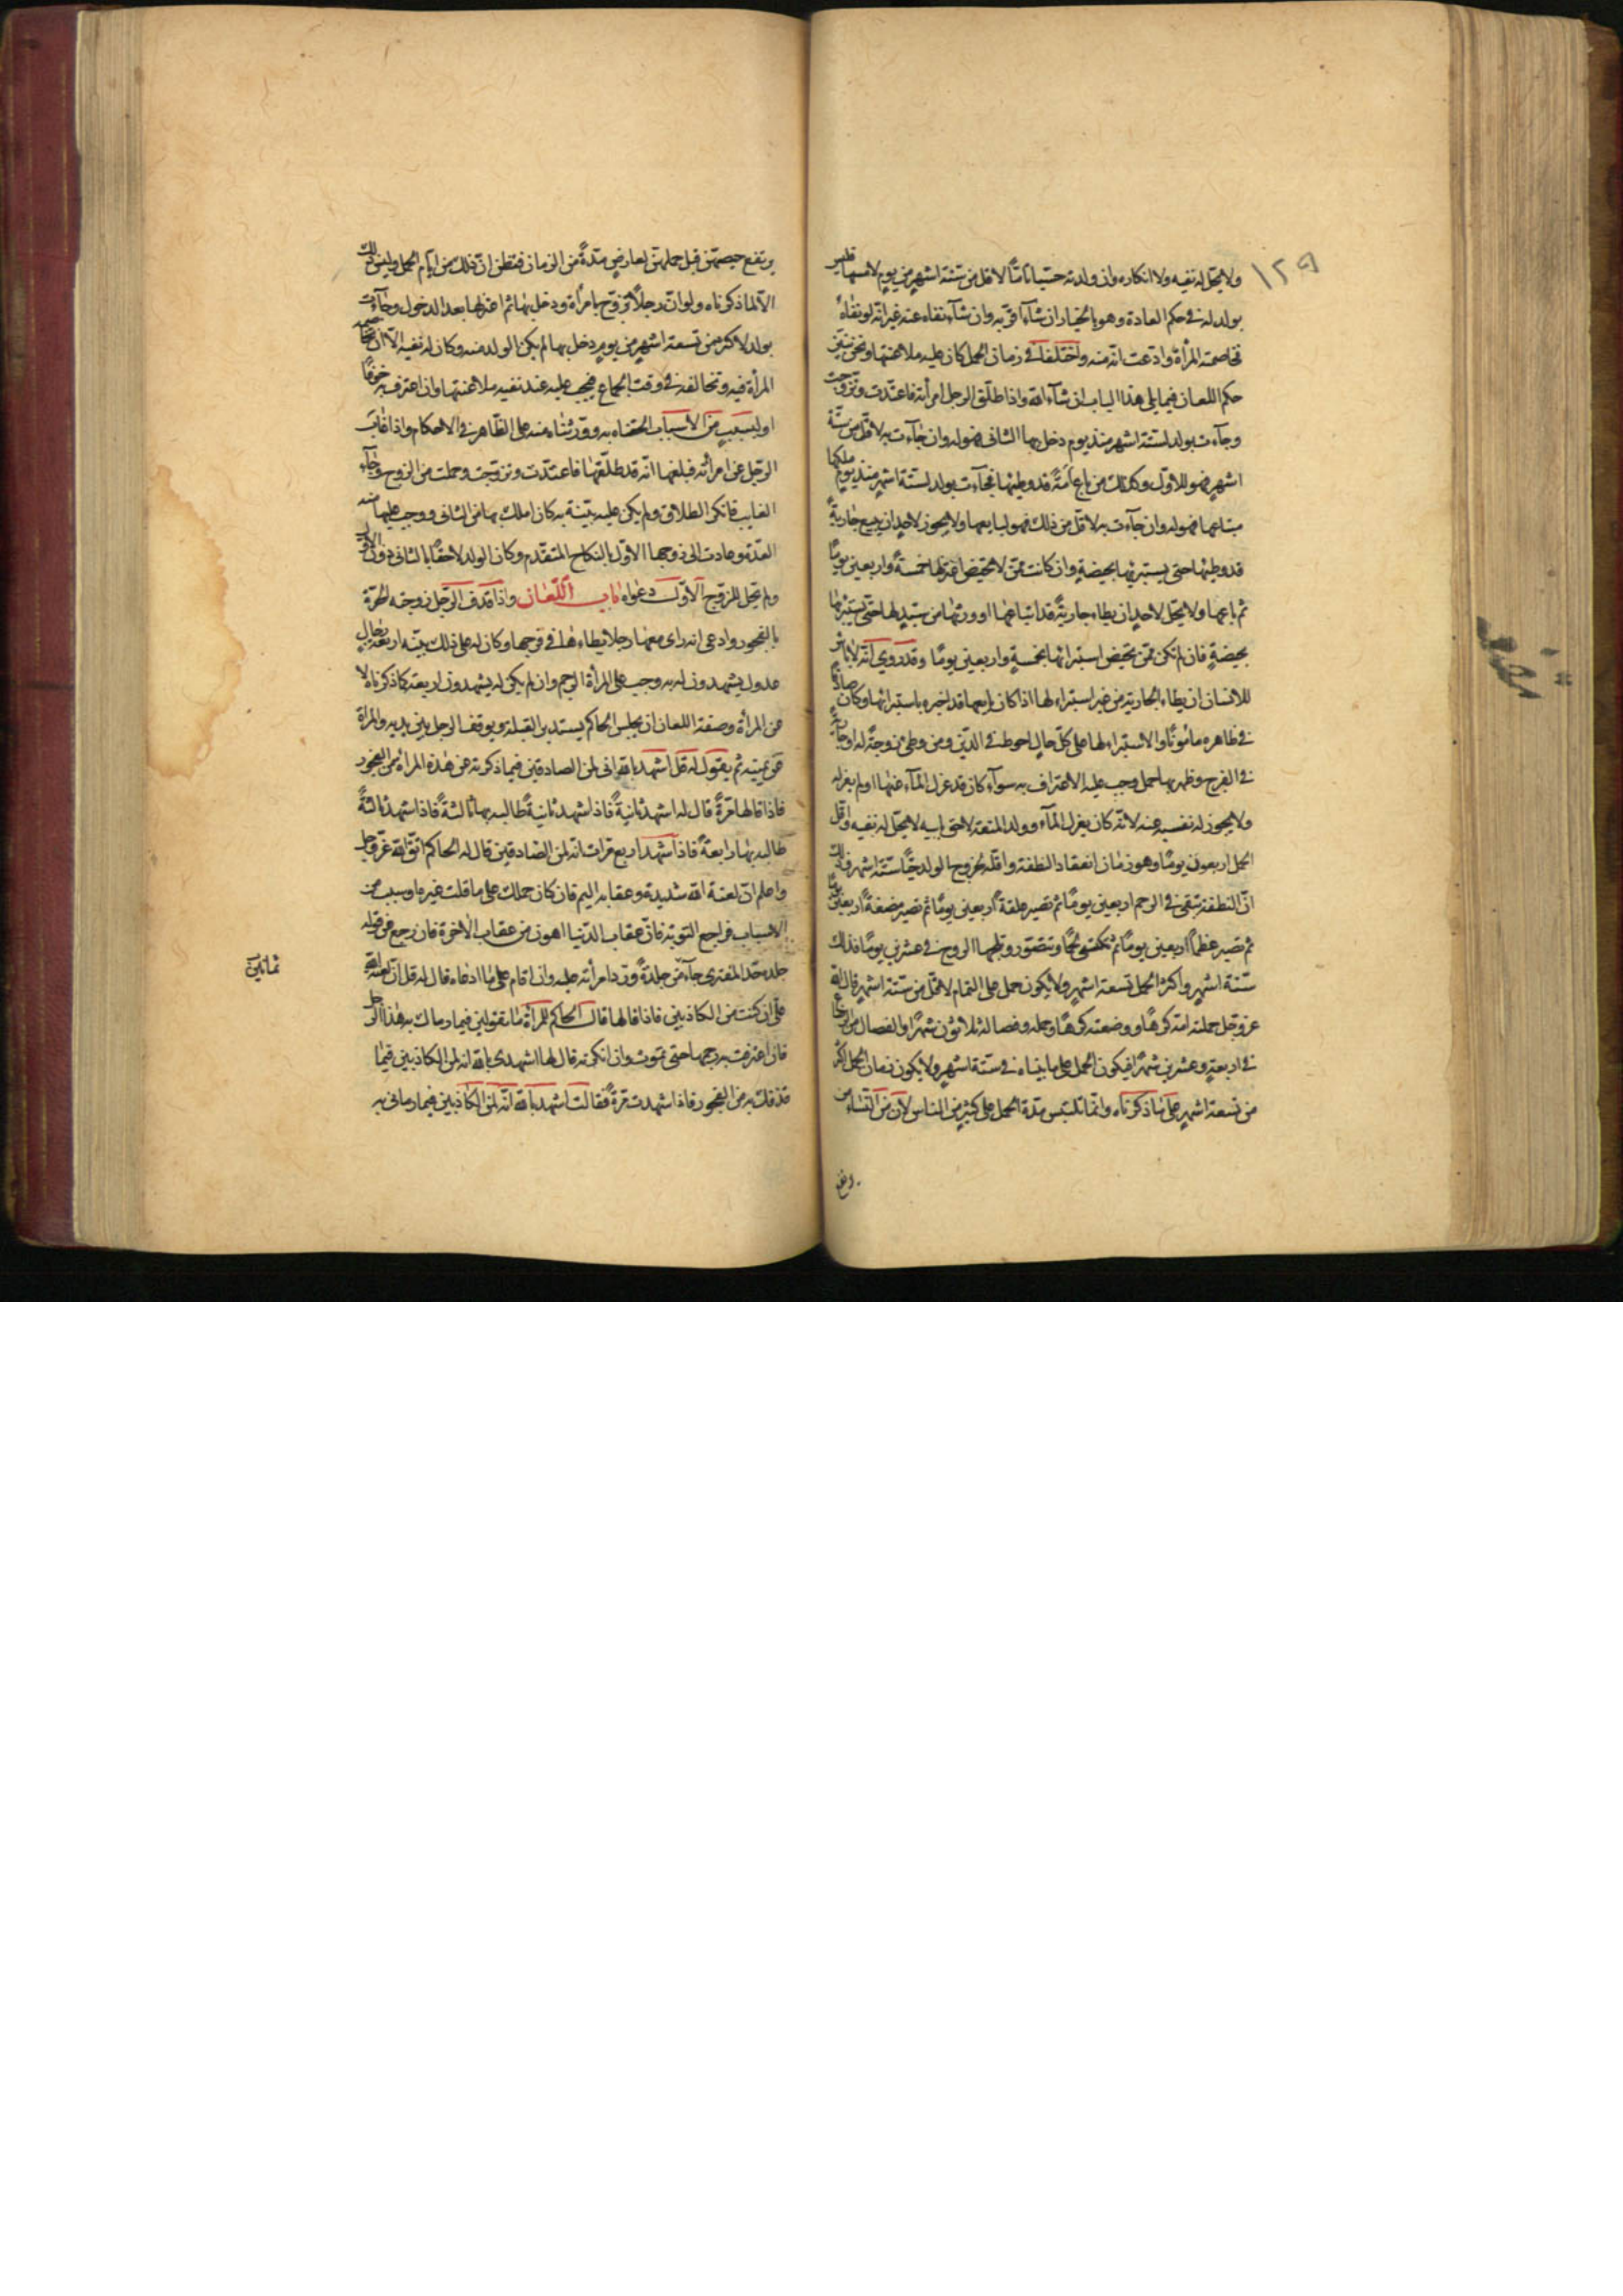 ولا يحل له نفيه ولا انكاره وان ولدته حيا تاما لاقل من ستة اشهر من يوم لامسها فليس
بولد له في حكم العادة وهو بالخيار ان شآء اقر به وان شآء نفاه عنه غير انه لو نفاه
فخاصمته المرأة وادعت انه منه واختلفا في زمان الحمل كان عليه ملاعنتها ونحن نبين
حكم اللعان فيما يلي هذا الباب ان شآء الله واذا طلق الرجل امرأته فاعتدت وتزوجت
وجآءت بولد لستة اشهر منذ يوم دخل بها الثاني فهو له وان جآءت به لاقل من ستة
اشهر فهو للاول وكذلك من باع امة قد وطئها فجآءت بولد لستة اشهر منذ يوم ملكها
مبتاعها فهو له وان جآءت به لاقل من ذلك فهو لبايعها ولا يجوز لاحد ان يبيع جارية
قد وطئها حتى يستبرئها بحيضة وان كانت ممن لا تحيض اعتزلها خمسة واربعين يوما
ثم باعها ولا يحل لاحد ان يطاء جارية قد ابتاعها او ورثها من سيد لها حتى يستبرئها
بحيضة فان لم تكن ممن تحيض استبرائها بخمسة واربعين يوما وقد روي انه لا باس
للانسان ان يطاء الجارية من غير استبراء لها اذا كان بايعها قد اخبره باستبرائها وكان صادقا
في ظاهره مامونا والاستبراء لها على كل حال احوط في الدين ومن وطئ زوجة له او جارية
في الفرج وظهر بها حمل وجب عليه الاعتراف به سوآء كان قد عزل المآء عنها او لم يعزله
ولا يجوز له نفسه عنه لانه كان يعزل المآء وولد المتعة لاحق بابيه لا يحل له نفيه واقل
الحمل اربعون يوما وهو زمان انعقاد النطفة واقله لخروج الولد حيا ستة اشهر وذلك
ان النطفة تبقى في الرحم اربعين يوما ثم تصير علقة اربعين يوما ثم تصير مضغة اربعين يوما
ثم تصير عظما اربعين يوما ثم تكتسي لحما وتتصور وتلجها الروح في عشرين يوما فذلك
ستة اشهر واكثر الحمل تسعة اشهر ولا يكون حمل على التمام لاقل من ستة اشهر قال الله
عز وجل حملته امه كرها ووضعته كرها وحمله وفصاله ثلاثون شهرا والفصال من الرضاع
في اربعة وعشرين شهرا فيكون الحمل على ما بيناه في ستة اشهر ولا يكون زمان الحمل اكثر
من تسعة اشهر على ما ذكرناه وانما تلتبس مدة الحمل على كثير من الناس لان من النساء من
١٢٩
يرتفع حيضهن قبل حملهن لعارض مدة من الزمان فتظن ان ذلك من ايام الحمل وليس كذلك
الا لما ذكرناه ولو ان رجلا تزوج بامراة ودخل بها ثم اعتزلها بعد الدخول وجآءت
بولد لاكثر من تسعة اشهر من يوم دخل بها لم يكن الولد منه وكان له نفيه الا ان تخاصمه
المرأة فيه وتخالفه في وقت الجماع فيجب عليه عند نفيه ملاعنتها وان اعترف به خوفا
او لسبب من الاسباب الحقناه به وورثناه منه على الظاهر في الاحكام واذا غاب
الرجل عن امرأته فبلغها انه قد طلقها فاعتدت وتزوجت وحملت من الزوج وجآء
الغايب فانكر الطلاق ولم يكن عليه بينة به كان املك بها من الثاني ووجب عليها منه
العدة وعادت الى زوجها الاول بالنكاح المتقدم وكان الولد لاحقا بالثاني دون الاول
ولم تحل للزوج الاول دعواه باب اللعان واذا قذف الرجل زوجته الحرة
بالفجور وادعى انه راى معها رجلا يطاءها في فرجها وكان له على ذلك بينة اربعة رجال
عدول يشهدون له به وجب على المرأة الرجم وان لم يكن له يشهدون اربعة كما ذكرناه لا
عن المرأة وصفة اللعان ان يجلس الحاكم يستدبر القبلة ويوقف الرجل بين يديه والمراة
عن يمينه ثم يقول له قل اشهد بالله اني لمن الصادقين فيما ذكرته عن هذه المراة من الفجور
فاذا قالها مرة قال له اشهد ثانية فاذا شهد ثانية طالبه بها ثالثة فاذا شهد ثالثة
طالبه بها رابعة فاذا شهد اربع مرات انه لمن الصادقين قال له الحاكم اتق الله عز وجل
واعلم ان لعنة الله شديدة وعقابه اليم فان كان حملك على ما قلت غيرة او سبب من
الاسباب فراجع التوبة فان عقاب الدنيا اهون من عقاب الاخرة فان رجع عن قوله
جلد حد المفتري جلدة ورد امرأته عليه وان اقام على ما ادعاه قال له قل ان لعنة الله
علي ان كنت من الكاذبين فاذا قالها قال الحاكم للمرأة ما تقولين فيما رماك به هذا الرجل
فان اعترفت به رجمها حتى تموت وان انكرته قال لها اشهدي بالله انه لمن الكاذبين فيما
قذفك به من الفجور فاذا شهدت مرة فقالت اشهد بالله انه لمن الكاذبين فيما رماني به
ثمانين